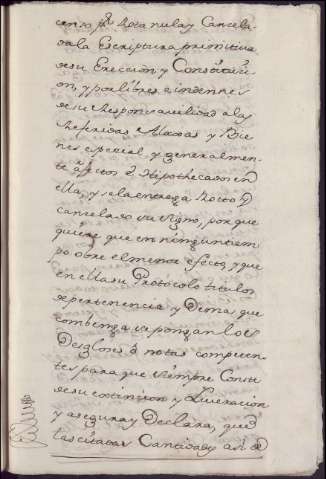 censo p.r Rota nula y Cancela-
da la Escriptura primitiva
de su Ereccion y Constitusi-
on, y por libres e indemnes
de su Responsavilidad a las
Referidas Alaxas y Bie-
nes especial y generalmen-
te afectos e Hipothecados en
ella, y se la entrega Rotto y
cancelado su signo, por que
quiere que en ningun tiem-
po obre el menor efecto, y que
en ella su Protócolo titulos
de pertenencia y demas que
combenga se pongan los
Desgloses o notas combenien-
tes para que siempre Conste
de su extincion y Liveracion
y asegura y Declara, que
las citadas Cantidades asi de